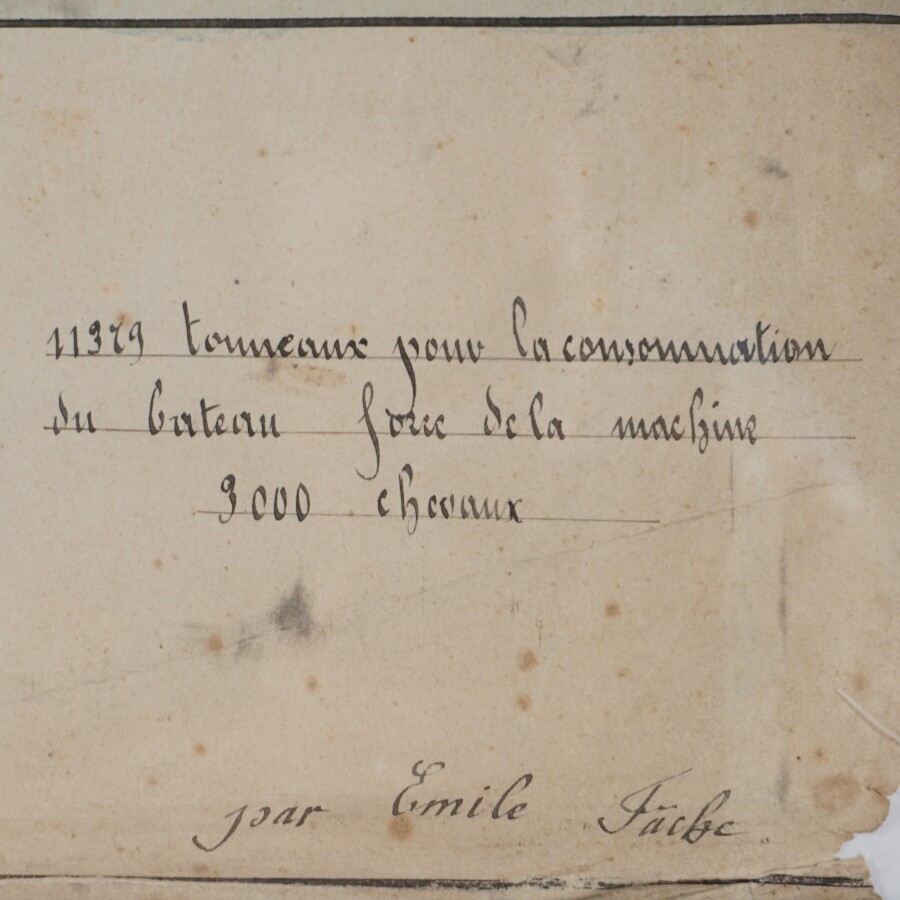 11379 tonneaux pour la consommation
du bateau force de la machine
3000 chevaux
par Emile Fäche